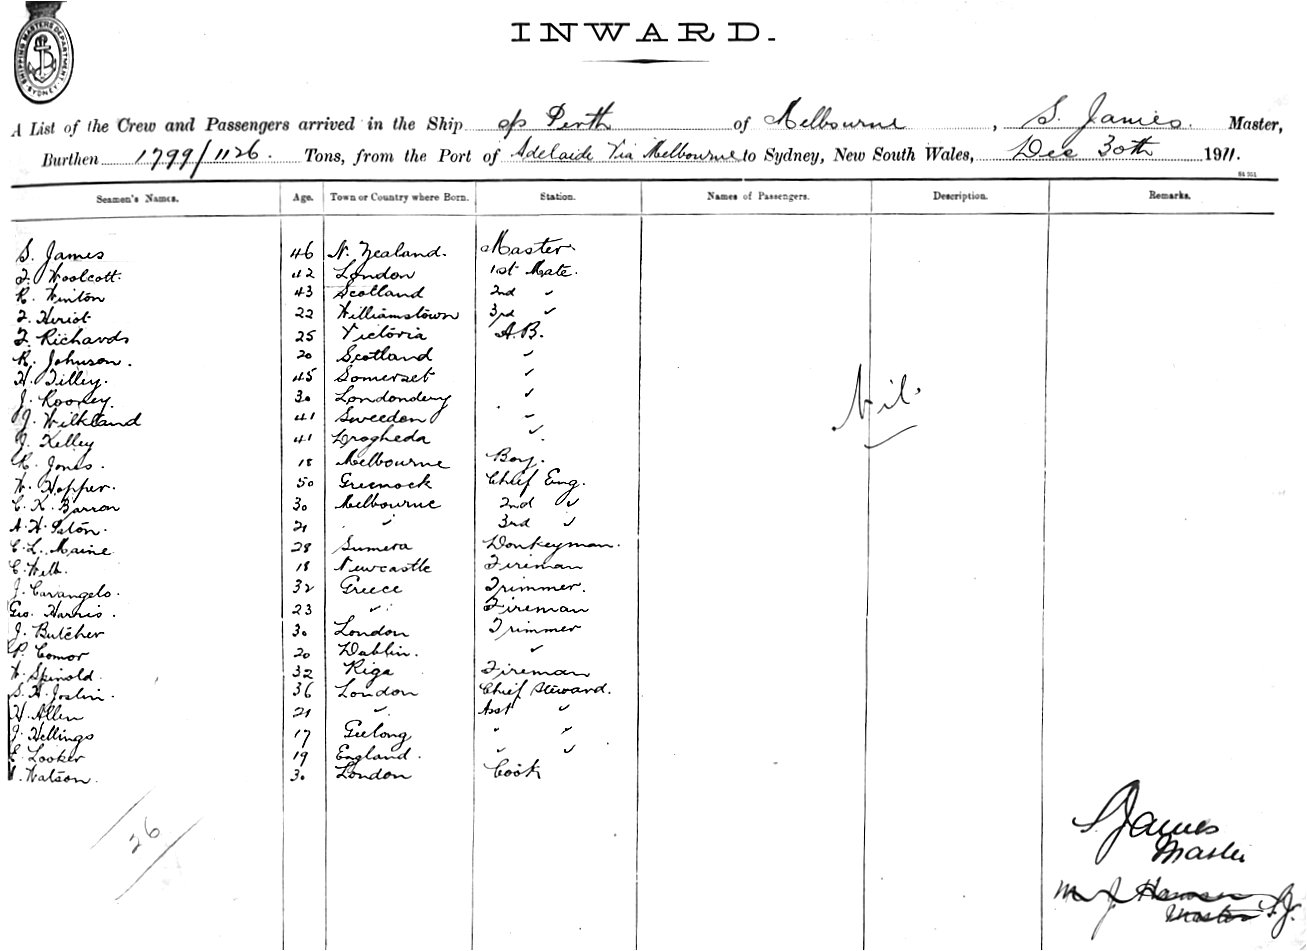 SHIPPING MASTERS DEPARTMENT SYDNEY
INWARD.
A List of the Crew and Passengers arrived in the Ship s/s Perth of Melbourne, S. James. Master,
Burthen 1799/1126. Tons, from the Port of Adelaide Via Melbourne to Sydney, New South Wales, Dec 30th 1911.
Seamen's Names. Age. Town or Country where Born. Station. Names of Passengers. Description. Remarks.
S. James 46 N. Zealand. Master
F. Woolcott 42 London 1st Mate.
R. Winton 43 Scotland 2nd "
F. Heriot 22 Williamstown 3rd "
F. Richards 25 Victoria A.B.
R. Johnson. 20 Scotland "
H. Tilley. 45 Somerset "
J. Rooney. 30 Londondery "
J. Wilkland 41 Sweeden "
J. Kelley 41 Drogheda "
R. Jones. 18 Melbourne Boy.
W. Hopper. 50 Greenock Chief Eng.
C. K. Barron 30 Melbourne 2nd "
A. H. 21 " 3rd "
C. L. Maine 28 Donkeyman.
C. Webb. 18 Newcastle Fireman
J. Carangelo. 32 Greece Trimmer.
Geo. Harris. 23 " Fireman
J. Butcher 30 London Trimmer
P. Comor 20 Dublin. "
W. Spinold. 32 Riga Fireman
S. H. Joslin. 36 London Chief Steward.
H. Allen 21 " Asst "
J. Hellings 17 Geelong " "
E. Looker 19 England. " "
Watson. 30 London Cook
Nil.
26
S. James
Master
M. J. Hansen
Master S.J.